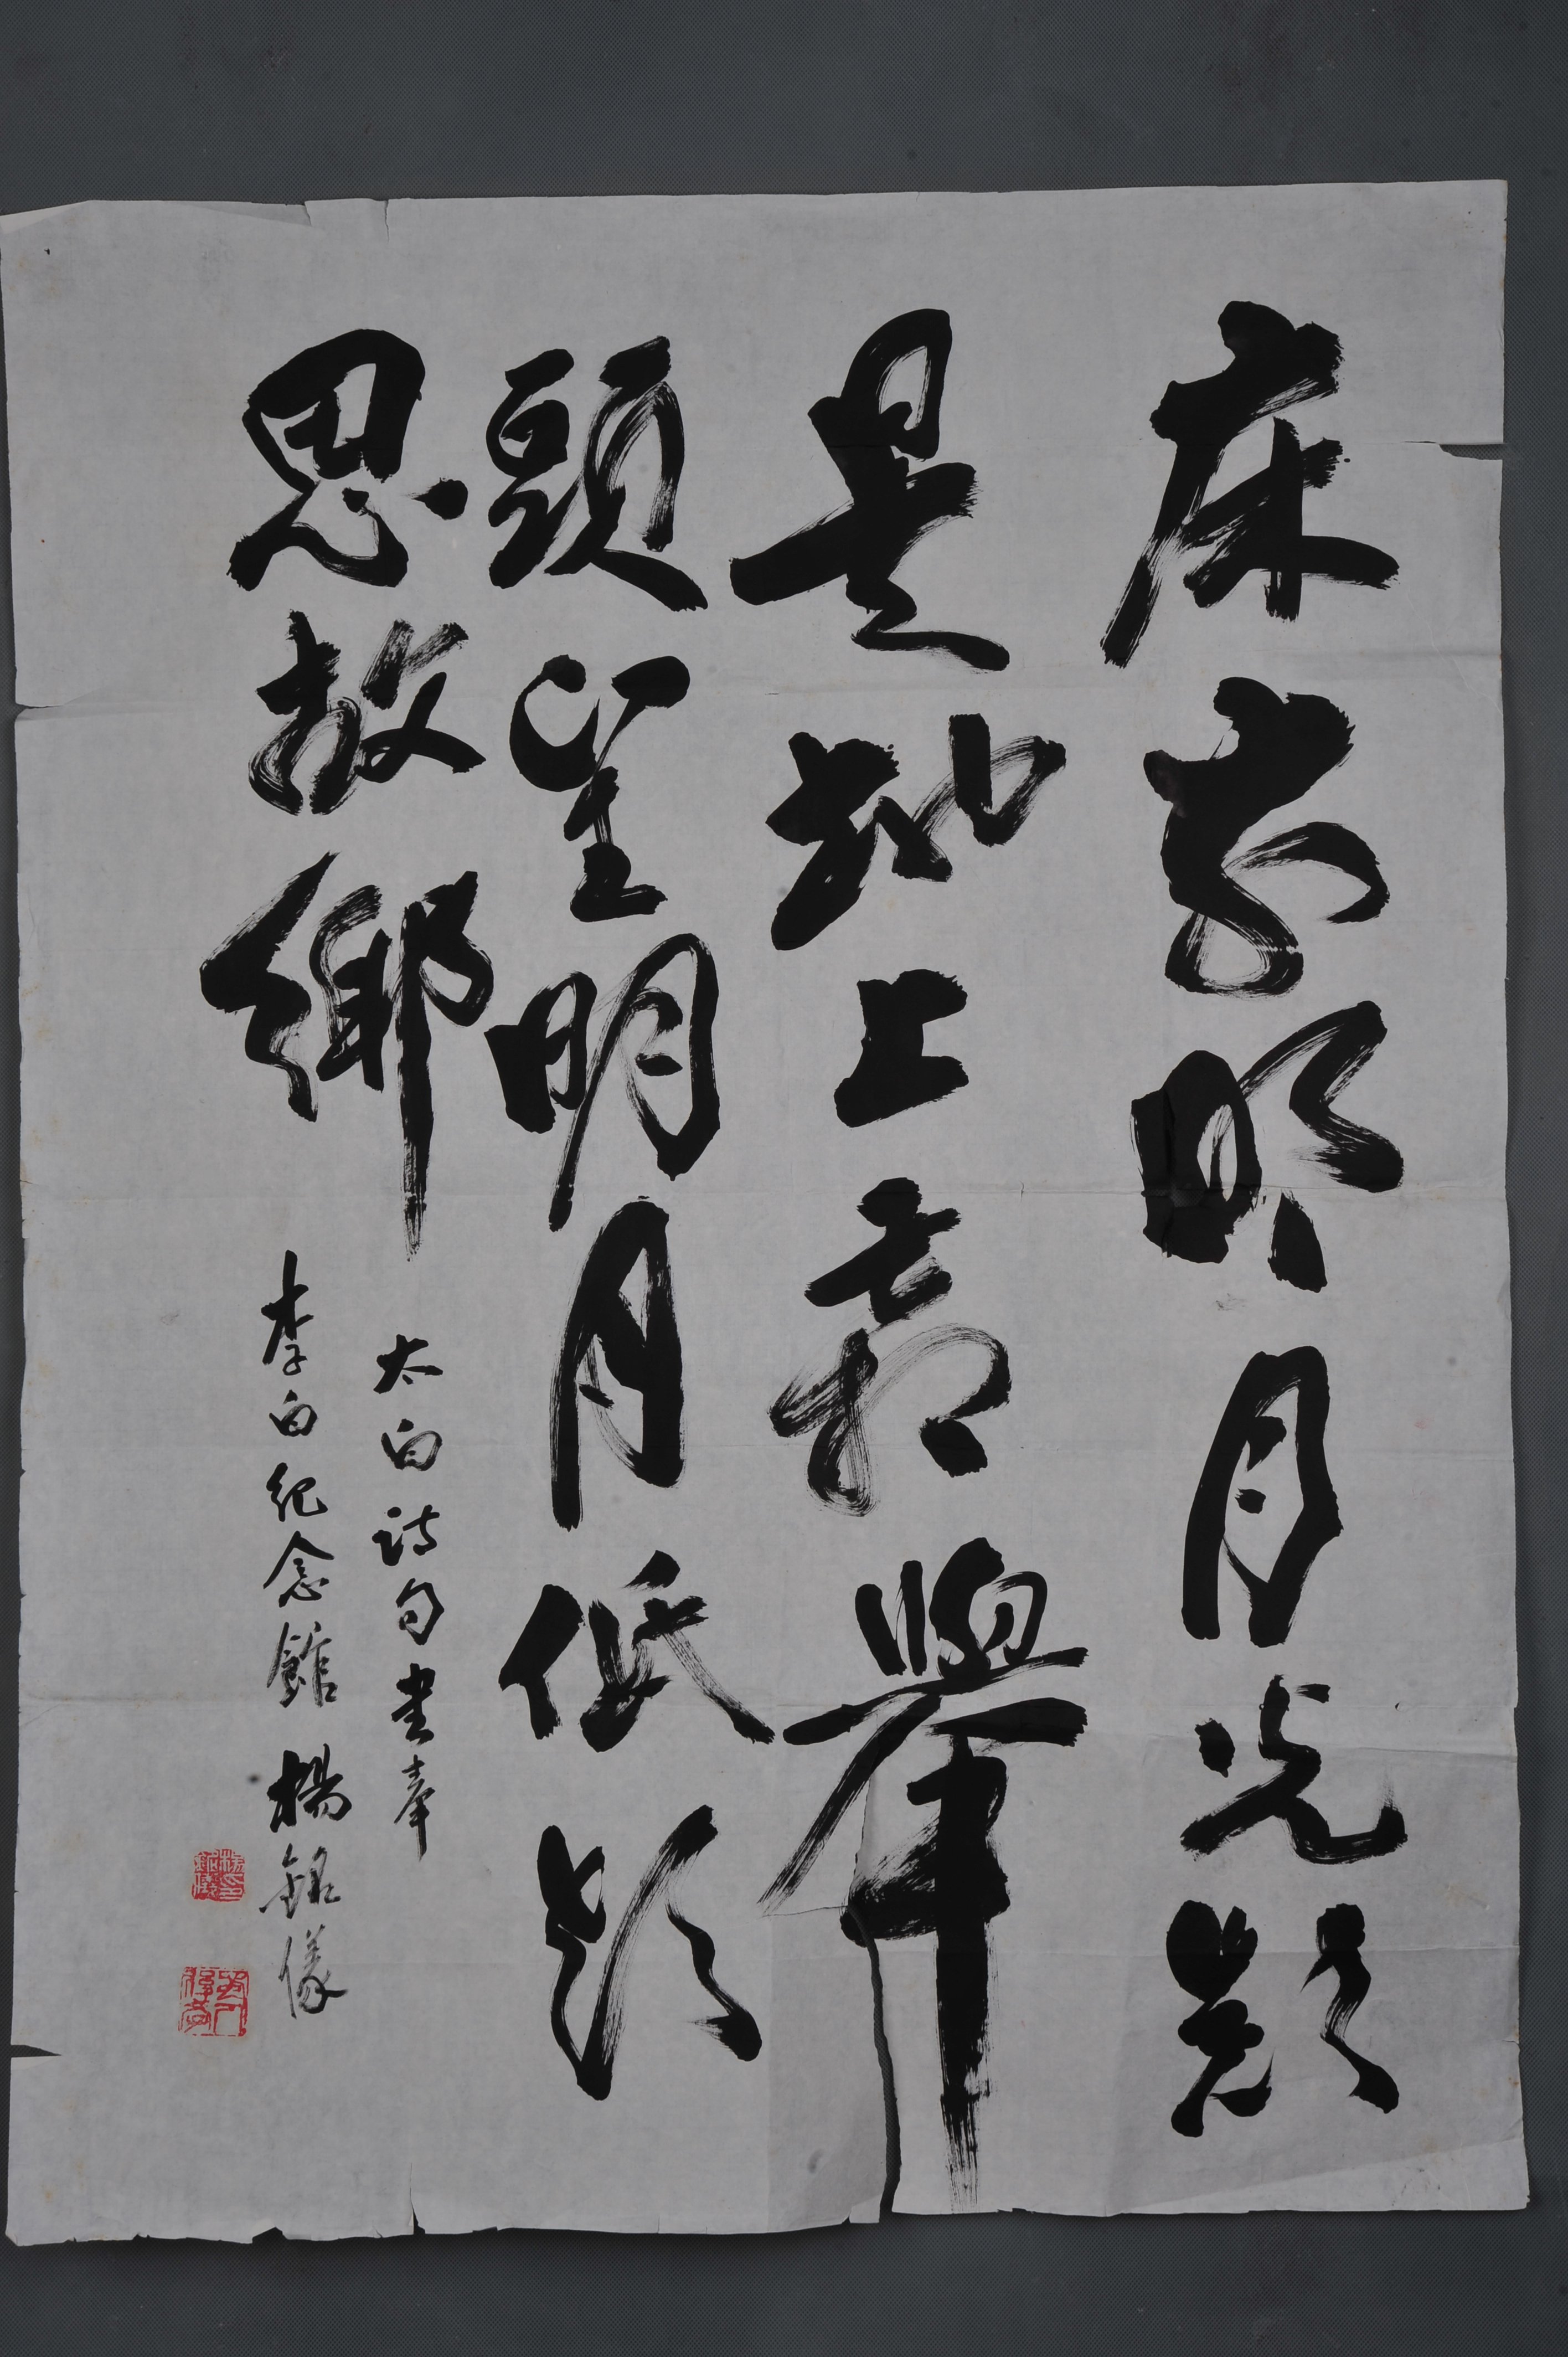 床前明月光疑
是地上霜舉
頭望明月低頭
思故鄉
太白詩句書奉
李白紀念館 楊銘儀